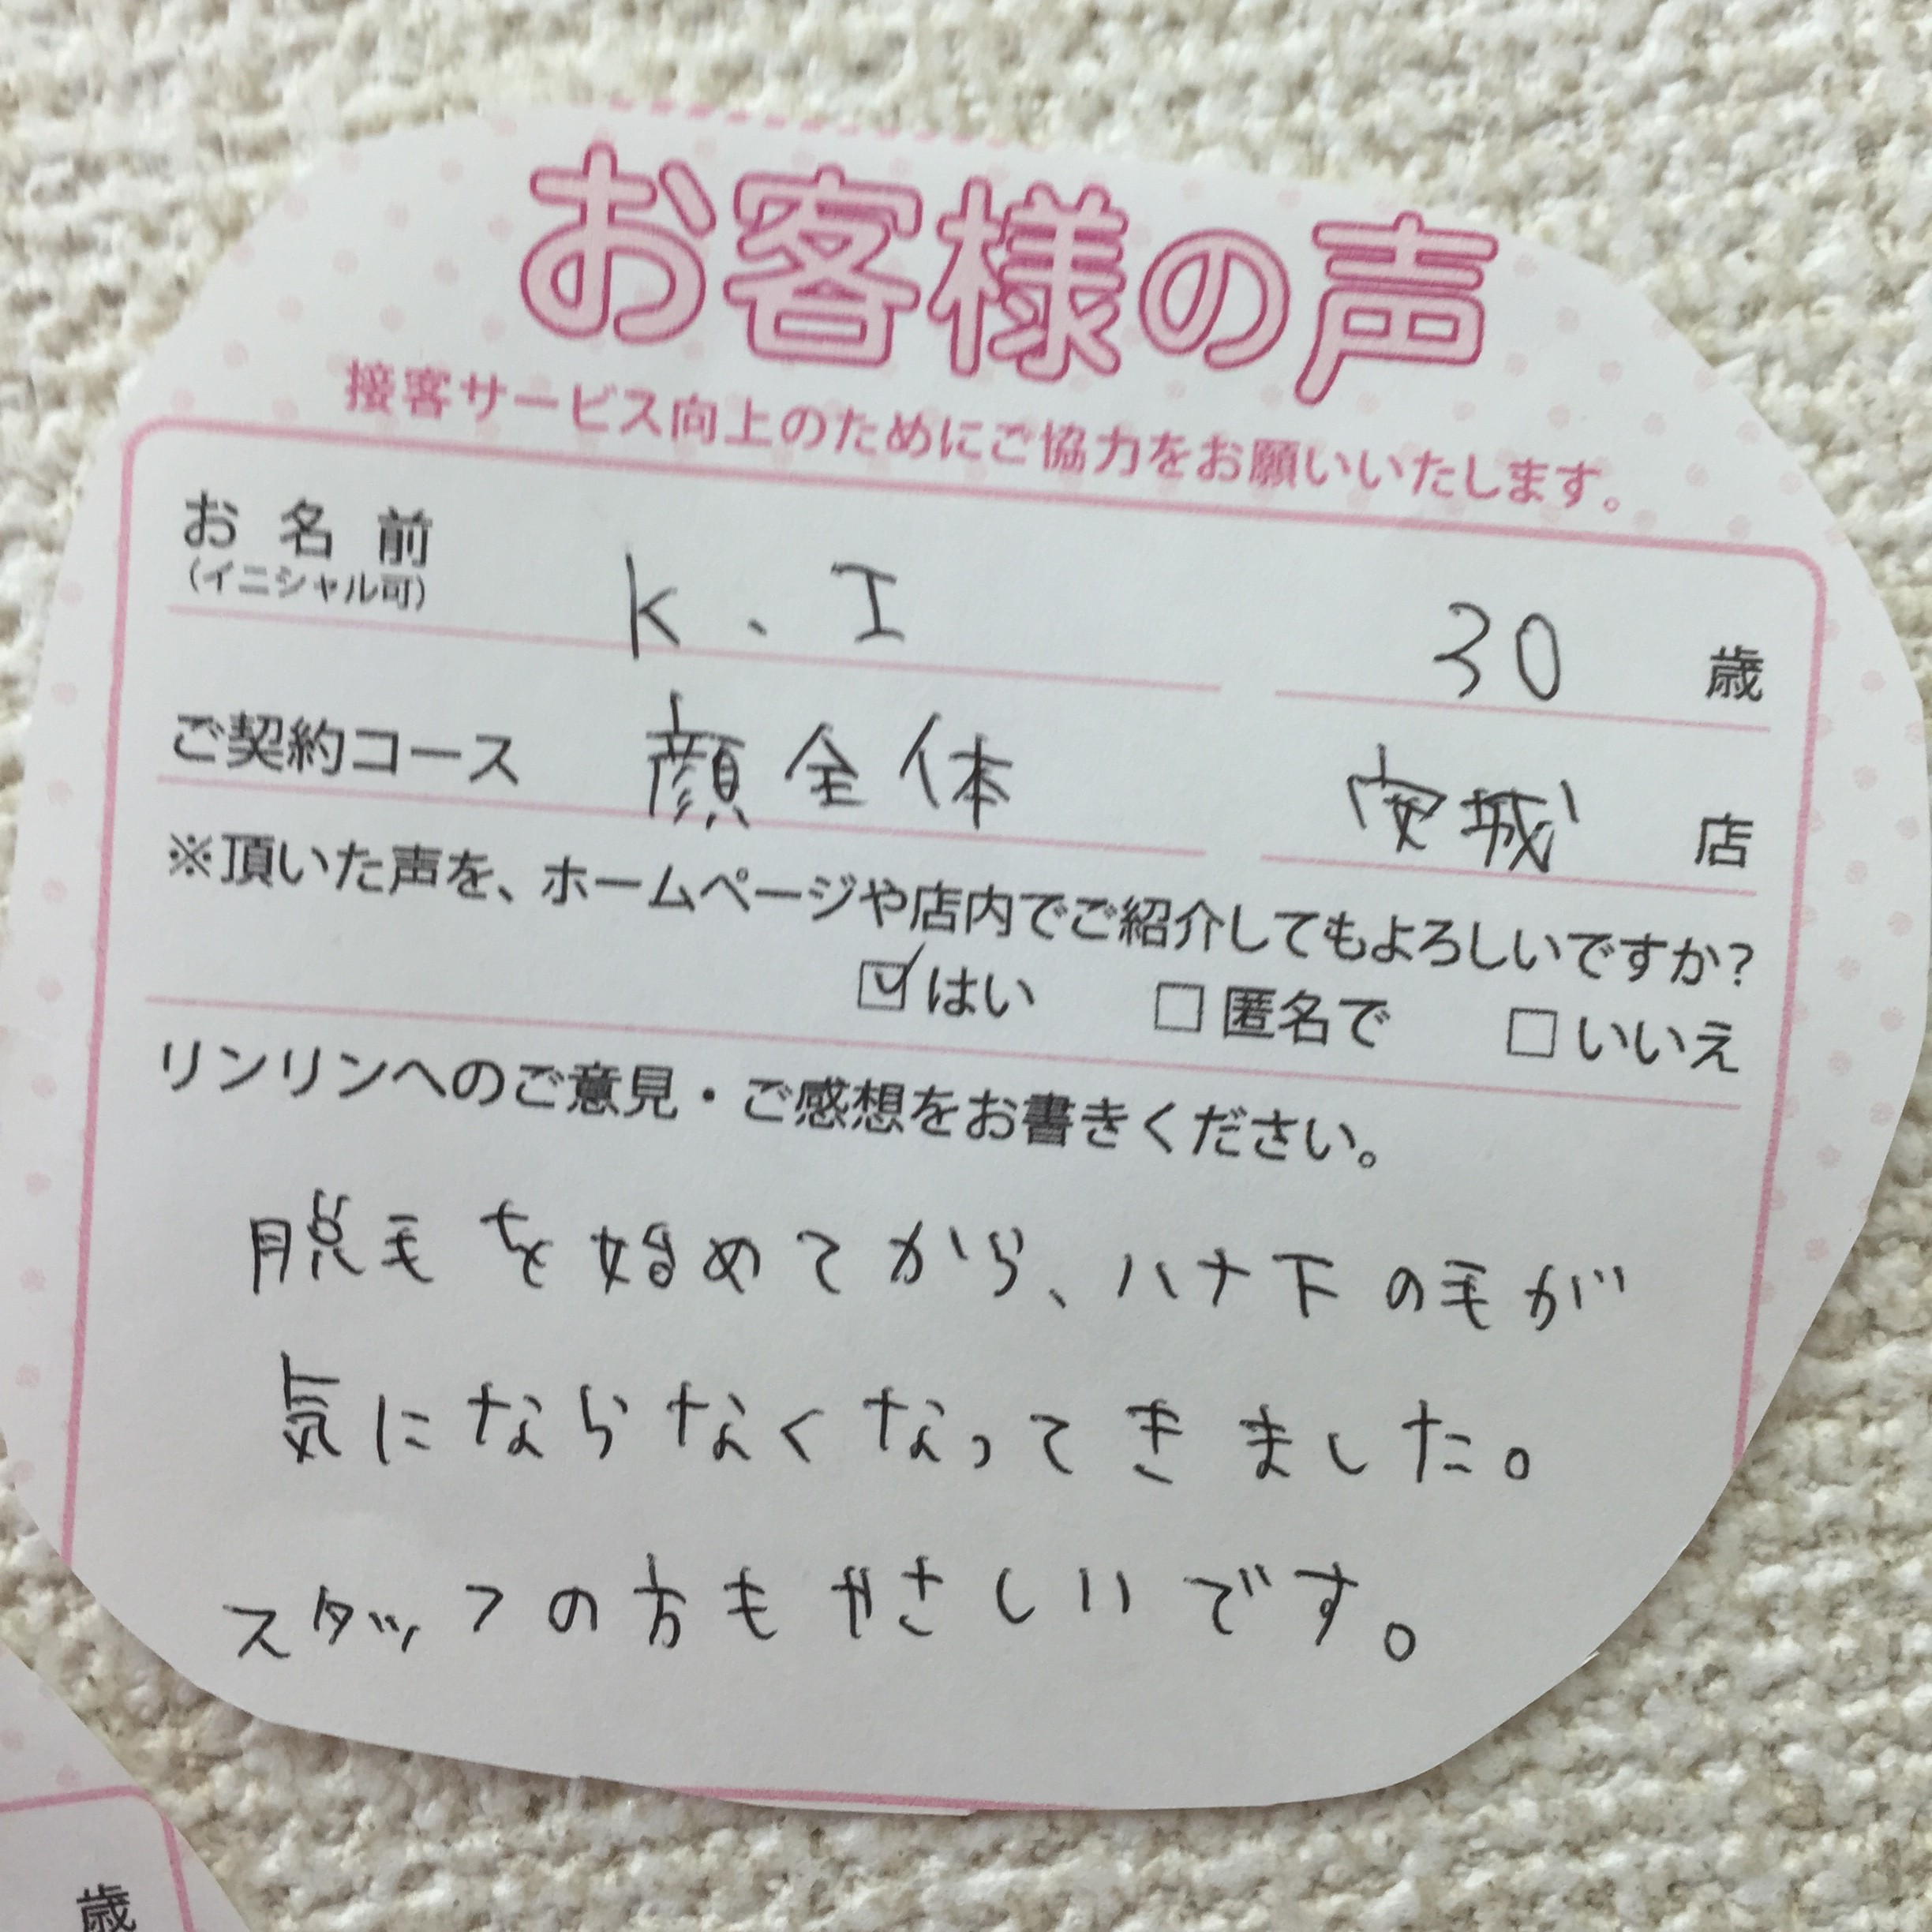 お客様の声
接客サービス向上のためにご協力をお願いいたします。
お名前 K、I 30 歳
(イニシャル可)
ご契約コース 顔全体 安城 店
※頂いた声を、ホームページや店内でご紹介してもよろしいですか?
☑はい □匿名で □いいえ
リンリンへのご意見・ご感想をお書きください。
脱毛を始めてから、ハナ下の毛が
気にならなくなってきました。
スタッフの方もやさしいです。
歳